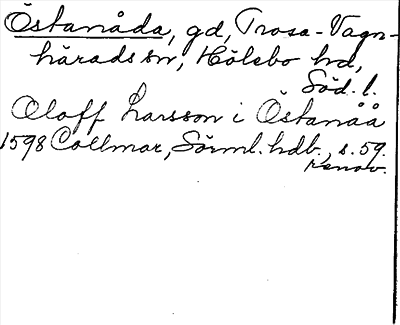 Östanåda, gd, Trosa-Vagn-
härads sn, Hölebo hd,
Söd. l.
Oloff Larsson i Östanåå
1598 Collmar, Sörml. hdb., s. 59.